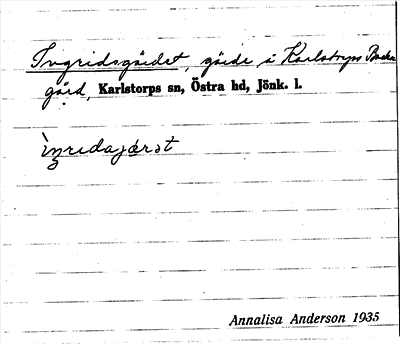 Ingridsgärdet, gärde i Karlstorps Backa
gård, Karlstorps sn, Östra hd, Jönk. l.
Annalisa Anderson 1935